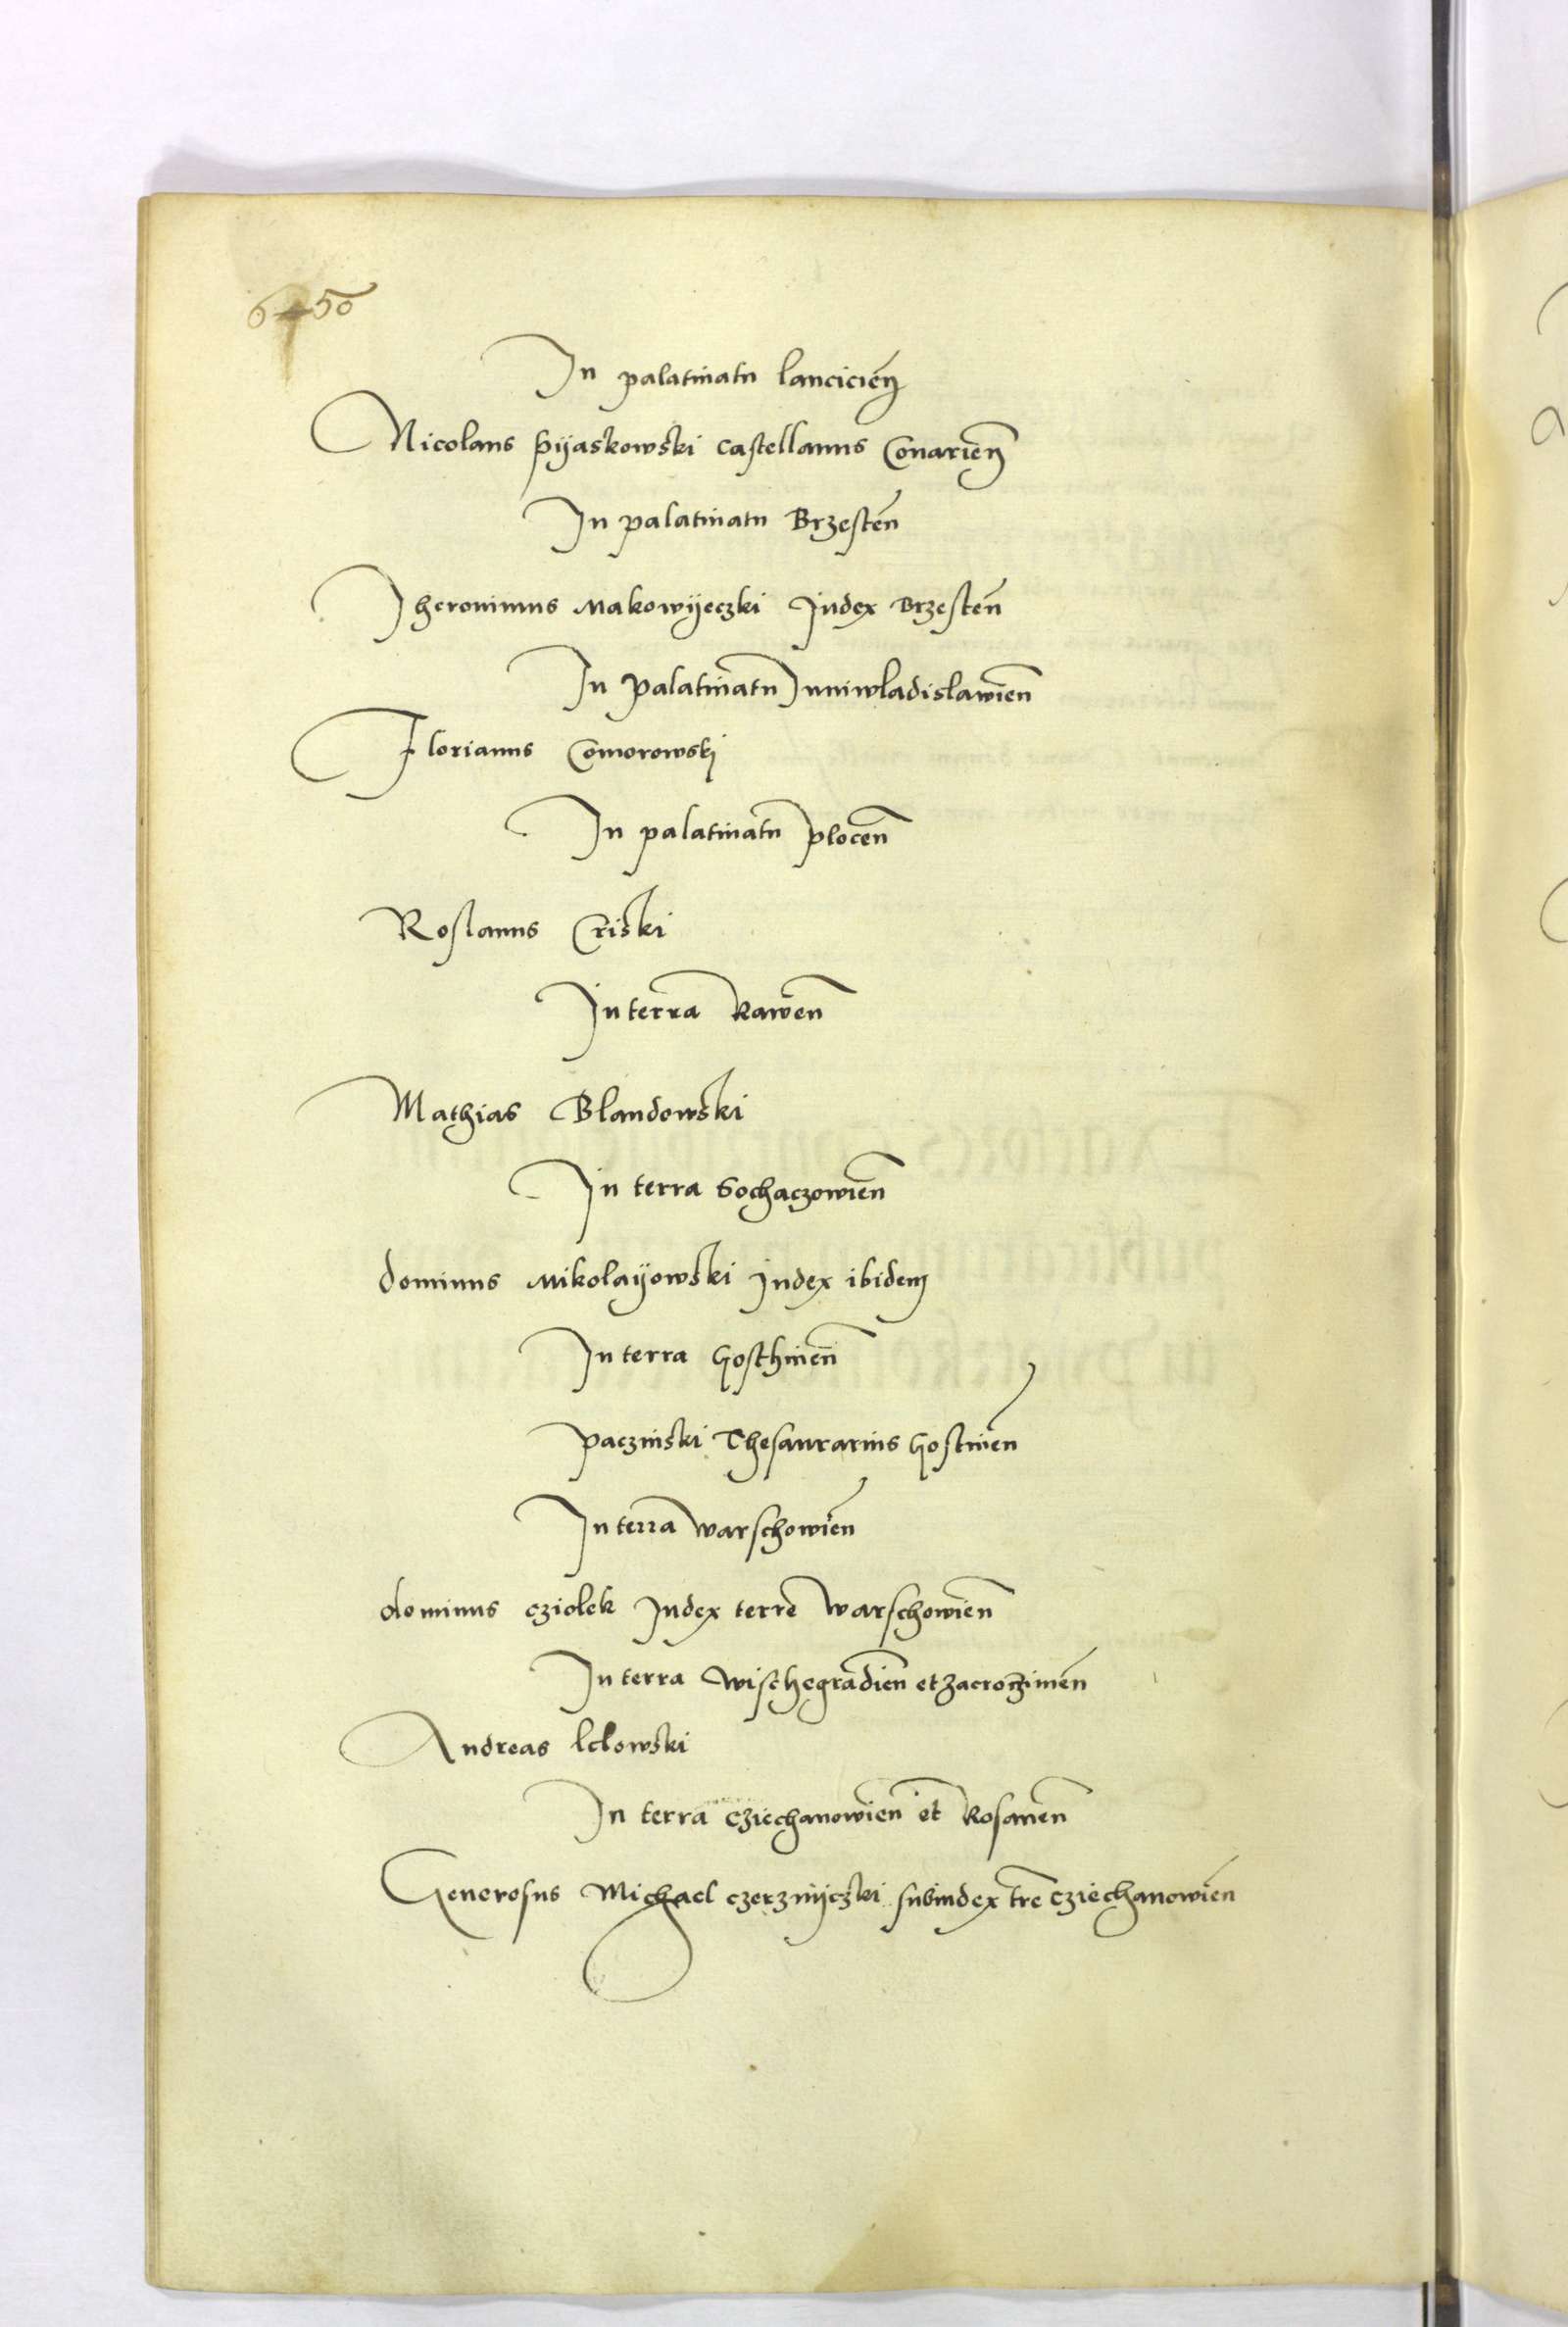 In palatinatu lancicien̄
Nicolaus pijaskowski castellanus Conarien̄
In palatinatu Brzesten̄
Iheronimus Makowijeczki Judex Brzesten̄
In palatinatu Juniwladislawien̄
Florianus Comorowskj
In palatinatu plocen̄
Roslanus Criski
In terra Rawen̄
Mathias Blandowski
In terra Sochaczowien̄
dominus Mikolaijowski Judex ibidem
In terra Gosthinen̄
paczinski Thesaurarius Gostinen̄
In terra warschowien̄
dominus cziolek Judex terre warschowien̄
In terra wischegradien̄ et zacroczimen̄
Andreas lclowski
In terra cziechanowien̄ et Rosanen̄
Generosus Michael czerznijczki subiudex tr̄e cziechanowien̄